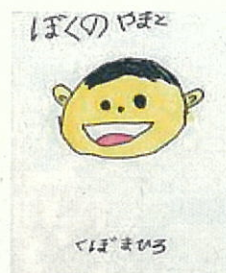 ぼくの やまと
くぼ まひろ